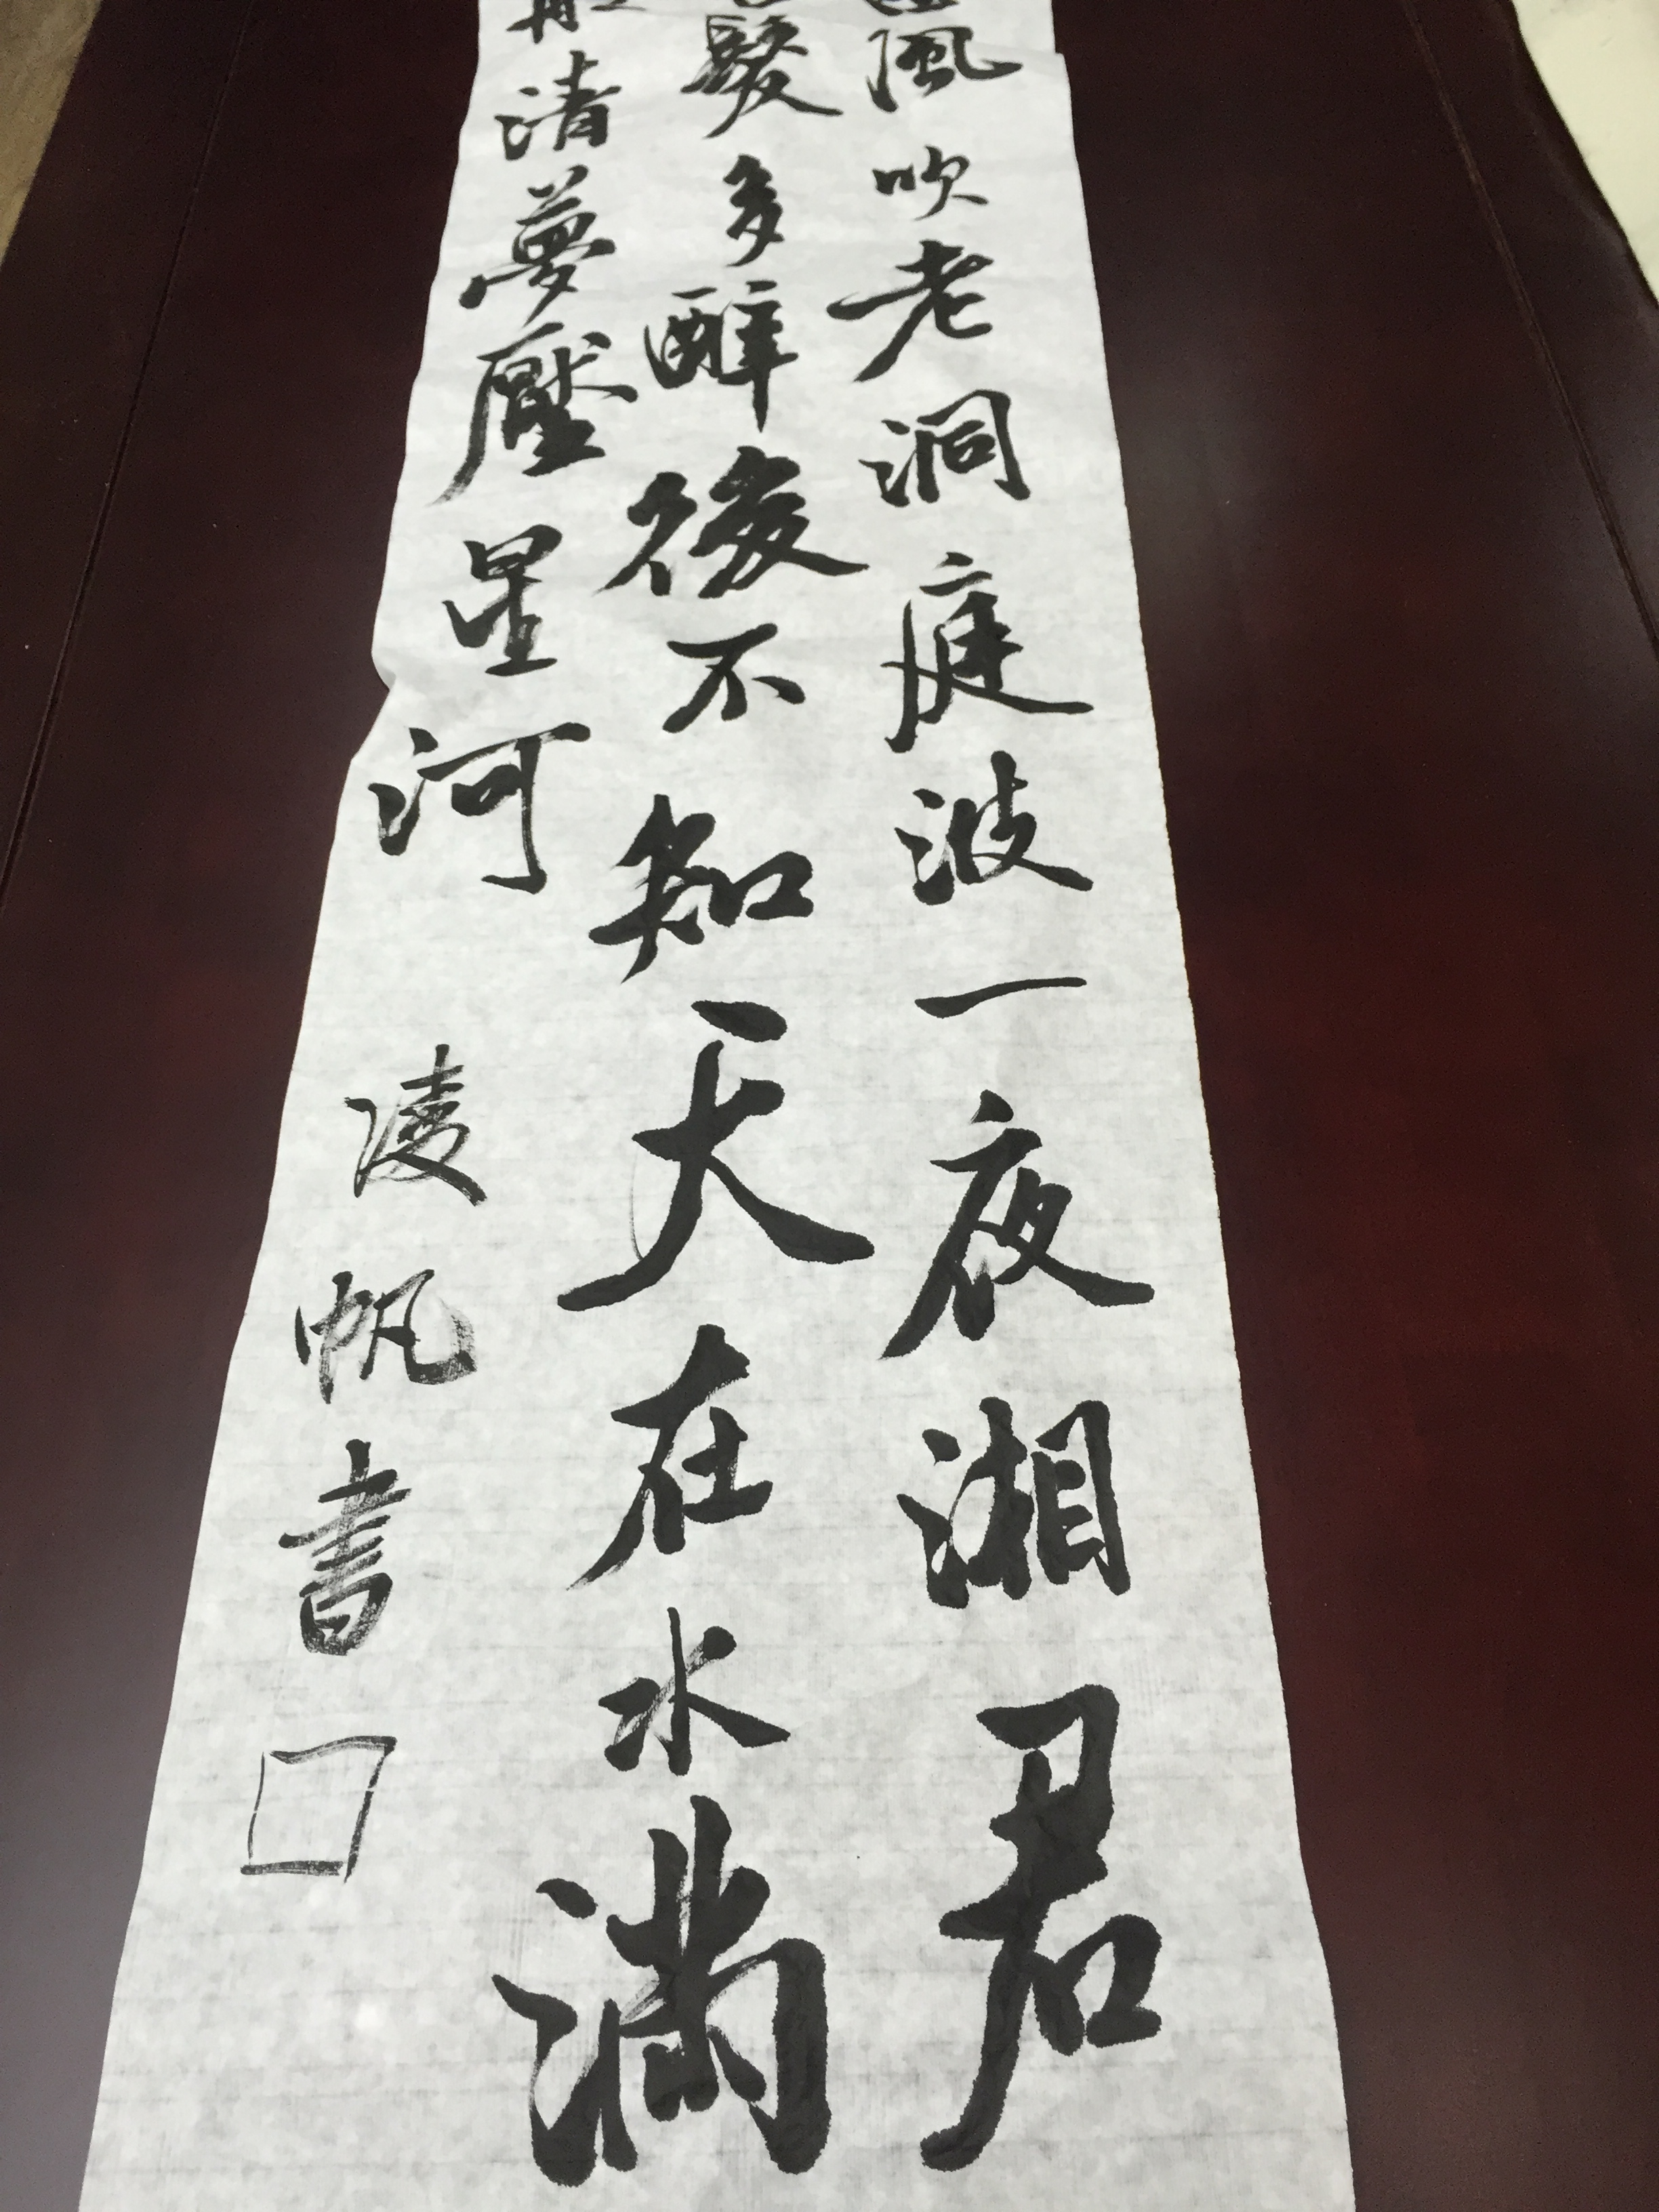 風吹老洞庭波一夜湘君
髮多醉後不知天在水滿
清夢壓星河
凌帆書